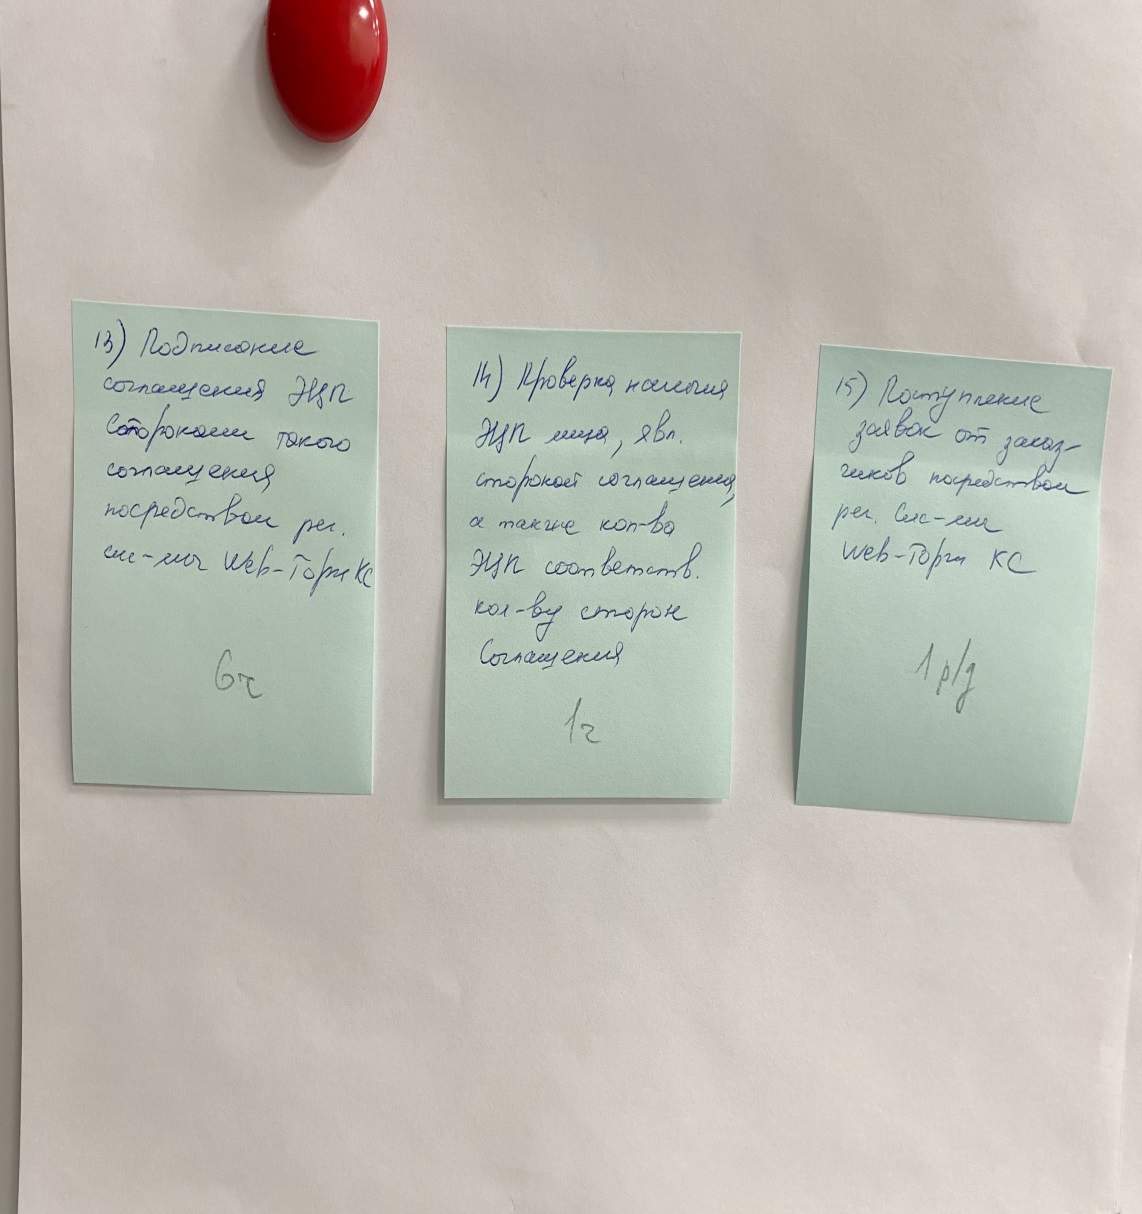 13) Подписание
соглашения ЭЦП
Сторонами такого
соглашения
посредством рег.
сис-мы Web-Торги КС
6ч
14) Проверка наличия
ЭЦП лица, явл.
стороной соглашения,
а также кол-ва
ЭЦП соответств.
кол-ву сторон
Соглашения
1ч
15) Поступление
заявок от заказ-
чиков посредством
рег. Сис-мы
Web-Торги КС
1 р/д